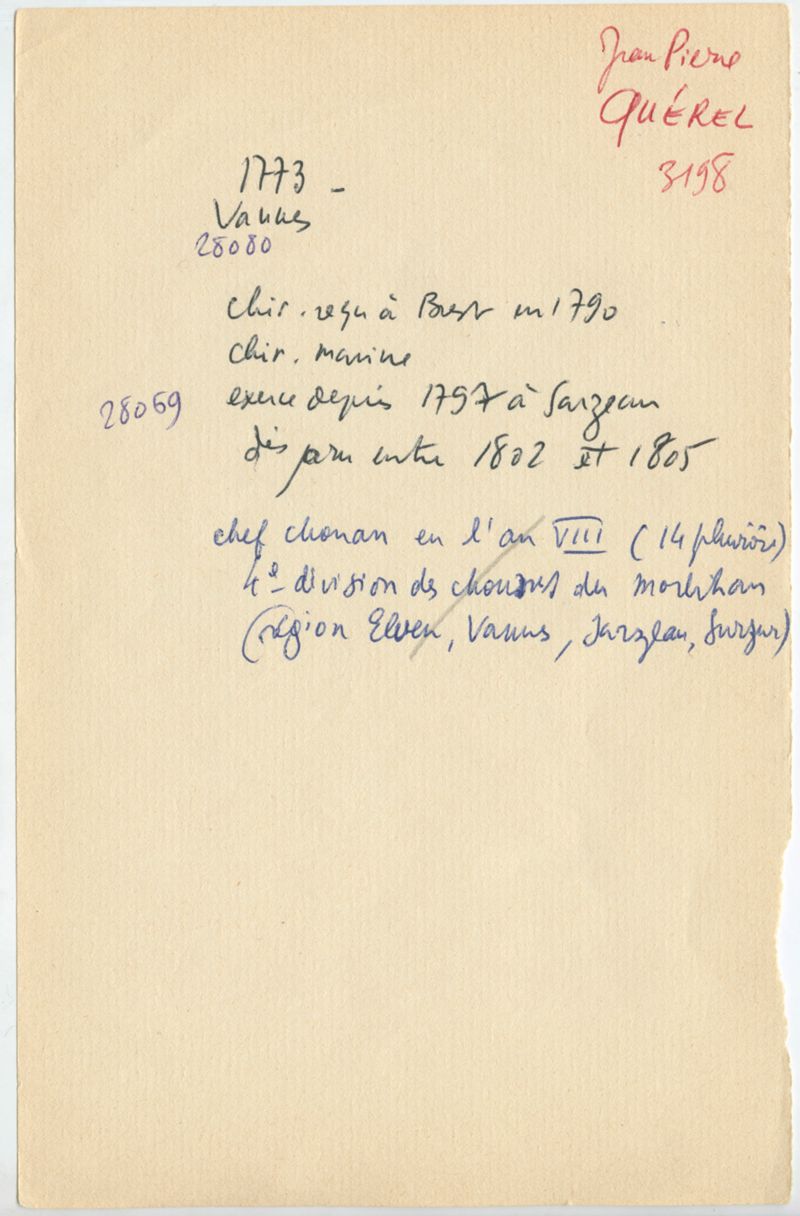 Jean Pierre
QUÉREL
3198
1773 -
Vannes
28080
chir. reçu à Brest en 1790
chir. marine
28069 exerce depuis 1797 à Sarzeau
disparu entre 1802 et 1805
chef chouan en l'an VIII (14 pluviôse)
4e division des chouans du Morbihan
(région Elven, Vannes, Sarzeau, Surzur)